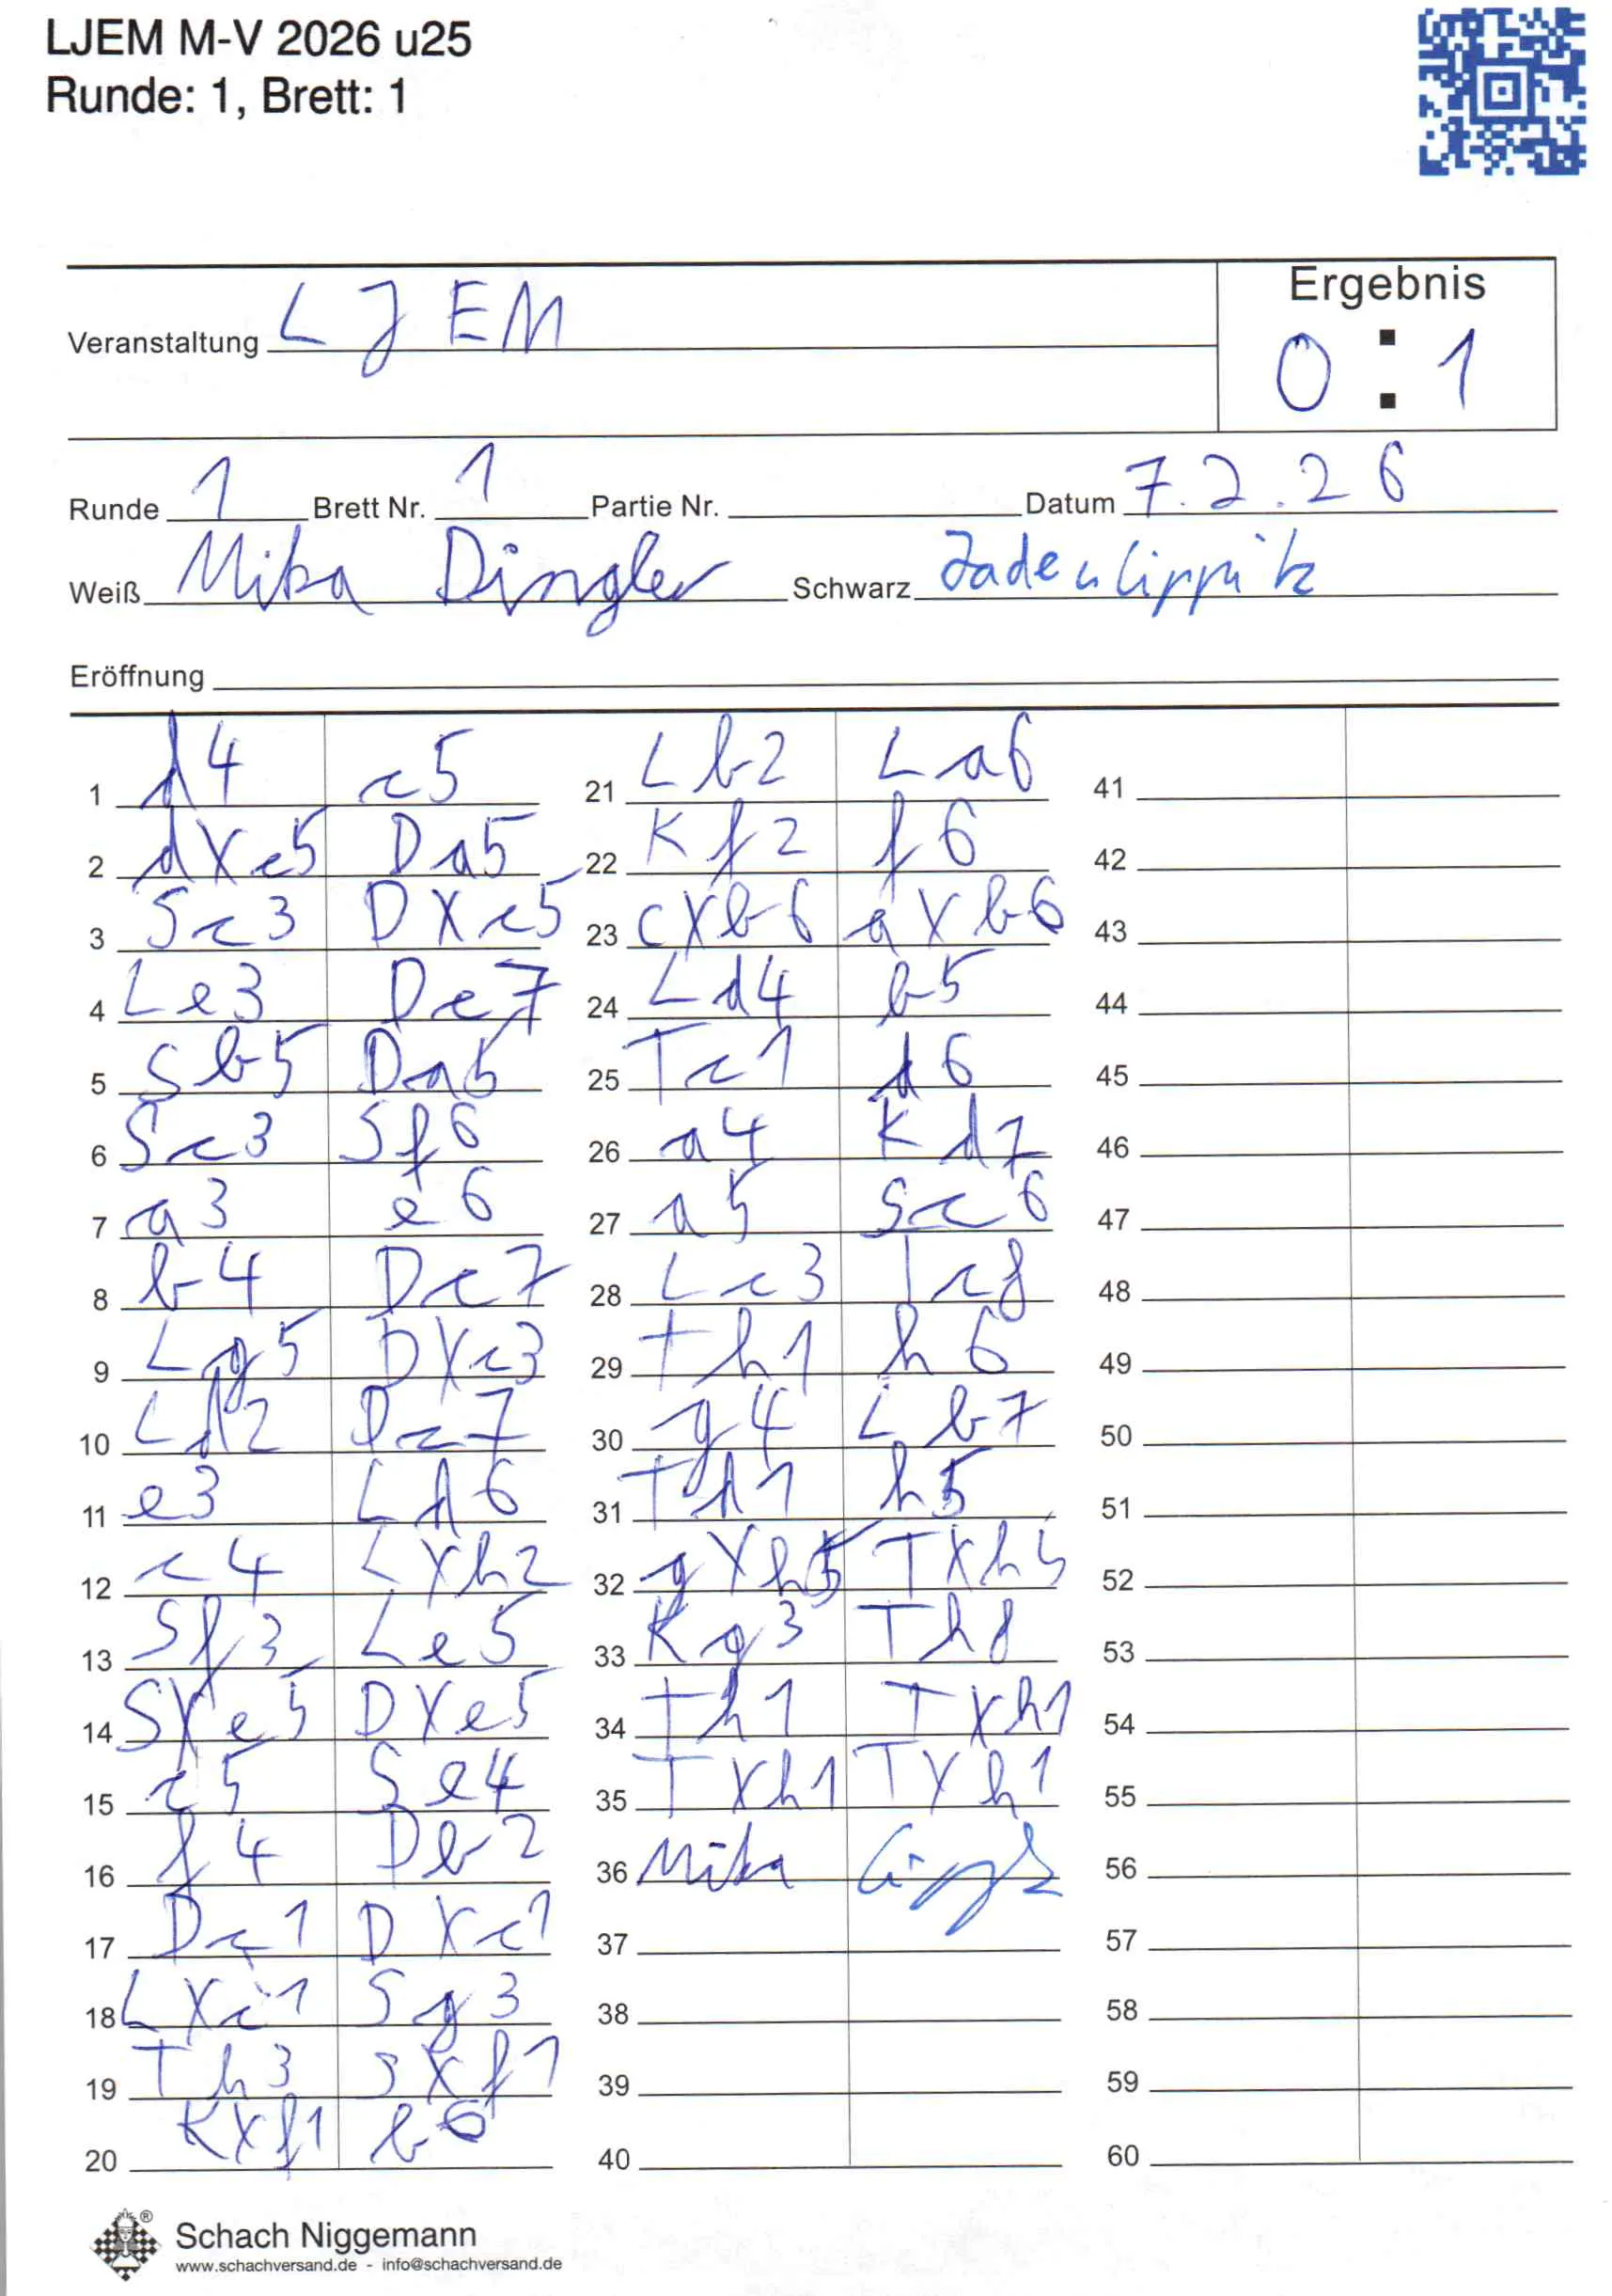 LJEM M-V 2026 u25
Runde: 1, Brett: 1
Ergebnis
Veranstaltung LJEM
0 : 1
Runde 1 Brett Nr. 1 Partie Nr. Datum 7.2.26
Weiß Mika Dingler Schwarz Jaden Lippitz
Eröffnung
1 d4 c5
2 dXc5 Da5
3 Sc3 DXc5
4 Le3 Dc7
5 Sb5 Da5
6 Sc3 Sf6
7 a3 e6
8 b4 Dc7
9 Lg5 DXc3
10 Ld2 Dc7
11 e3 Ld6
12 c4 LXh2
13 Sf3 Le5
14 SXe5 DXe5
15 c5 Se4
16 f4 Db2
17 Dc1 DXc1
18 LXc1 Sg3
19 Th3 SXf1
20 KXf1 b6
21 Lb2 La6
22 Kf2 f6
23 cXb6 aXb6
24 Ld4 b5
25 Tc1 d6
26 a4 Kd7
27 a5 Sc6
28 Lc3 Tc8
29 Th1 h6
30 g4 Lb7
31 Td1 h5
32 gXh5 TXh5
33 Kg3 Th8
34 Th1 TXh1
35 TXh1 TXh1
36 Mika Lippitz
37
38
39
40
41
42
43
44
45
46
47
48
49
50
51
52
53
54
55
56
57
58
59
60
Schach Niggemann
www.schachversand.de - info@schachversand.de